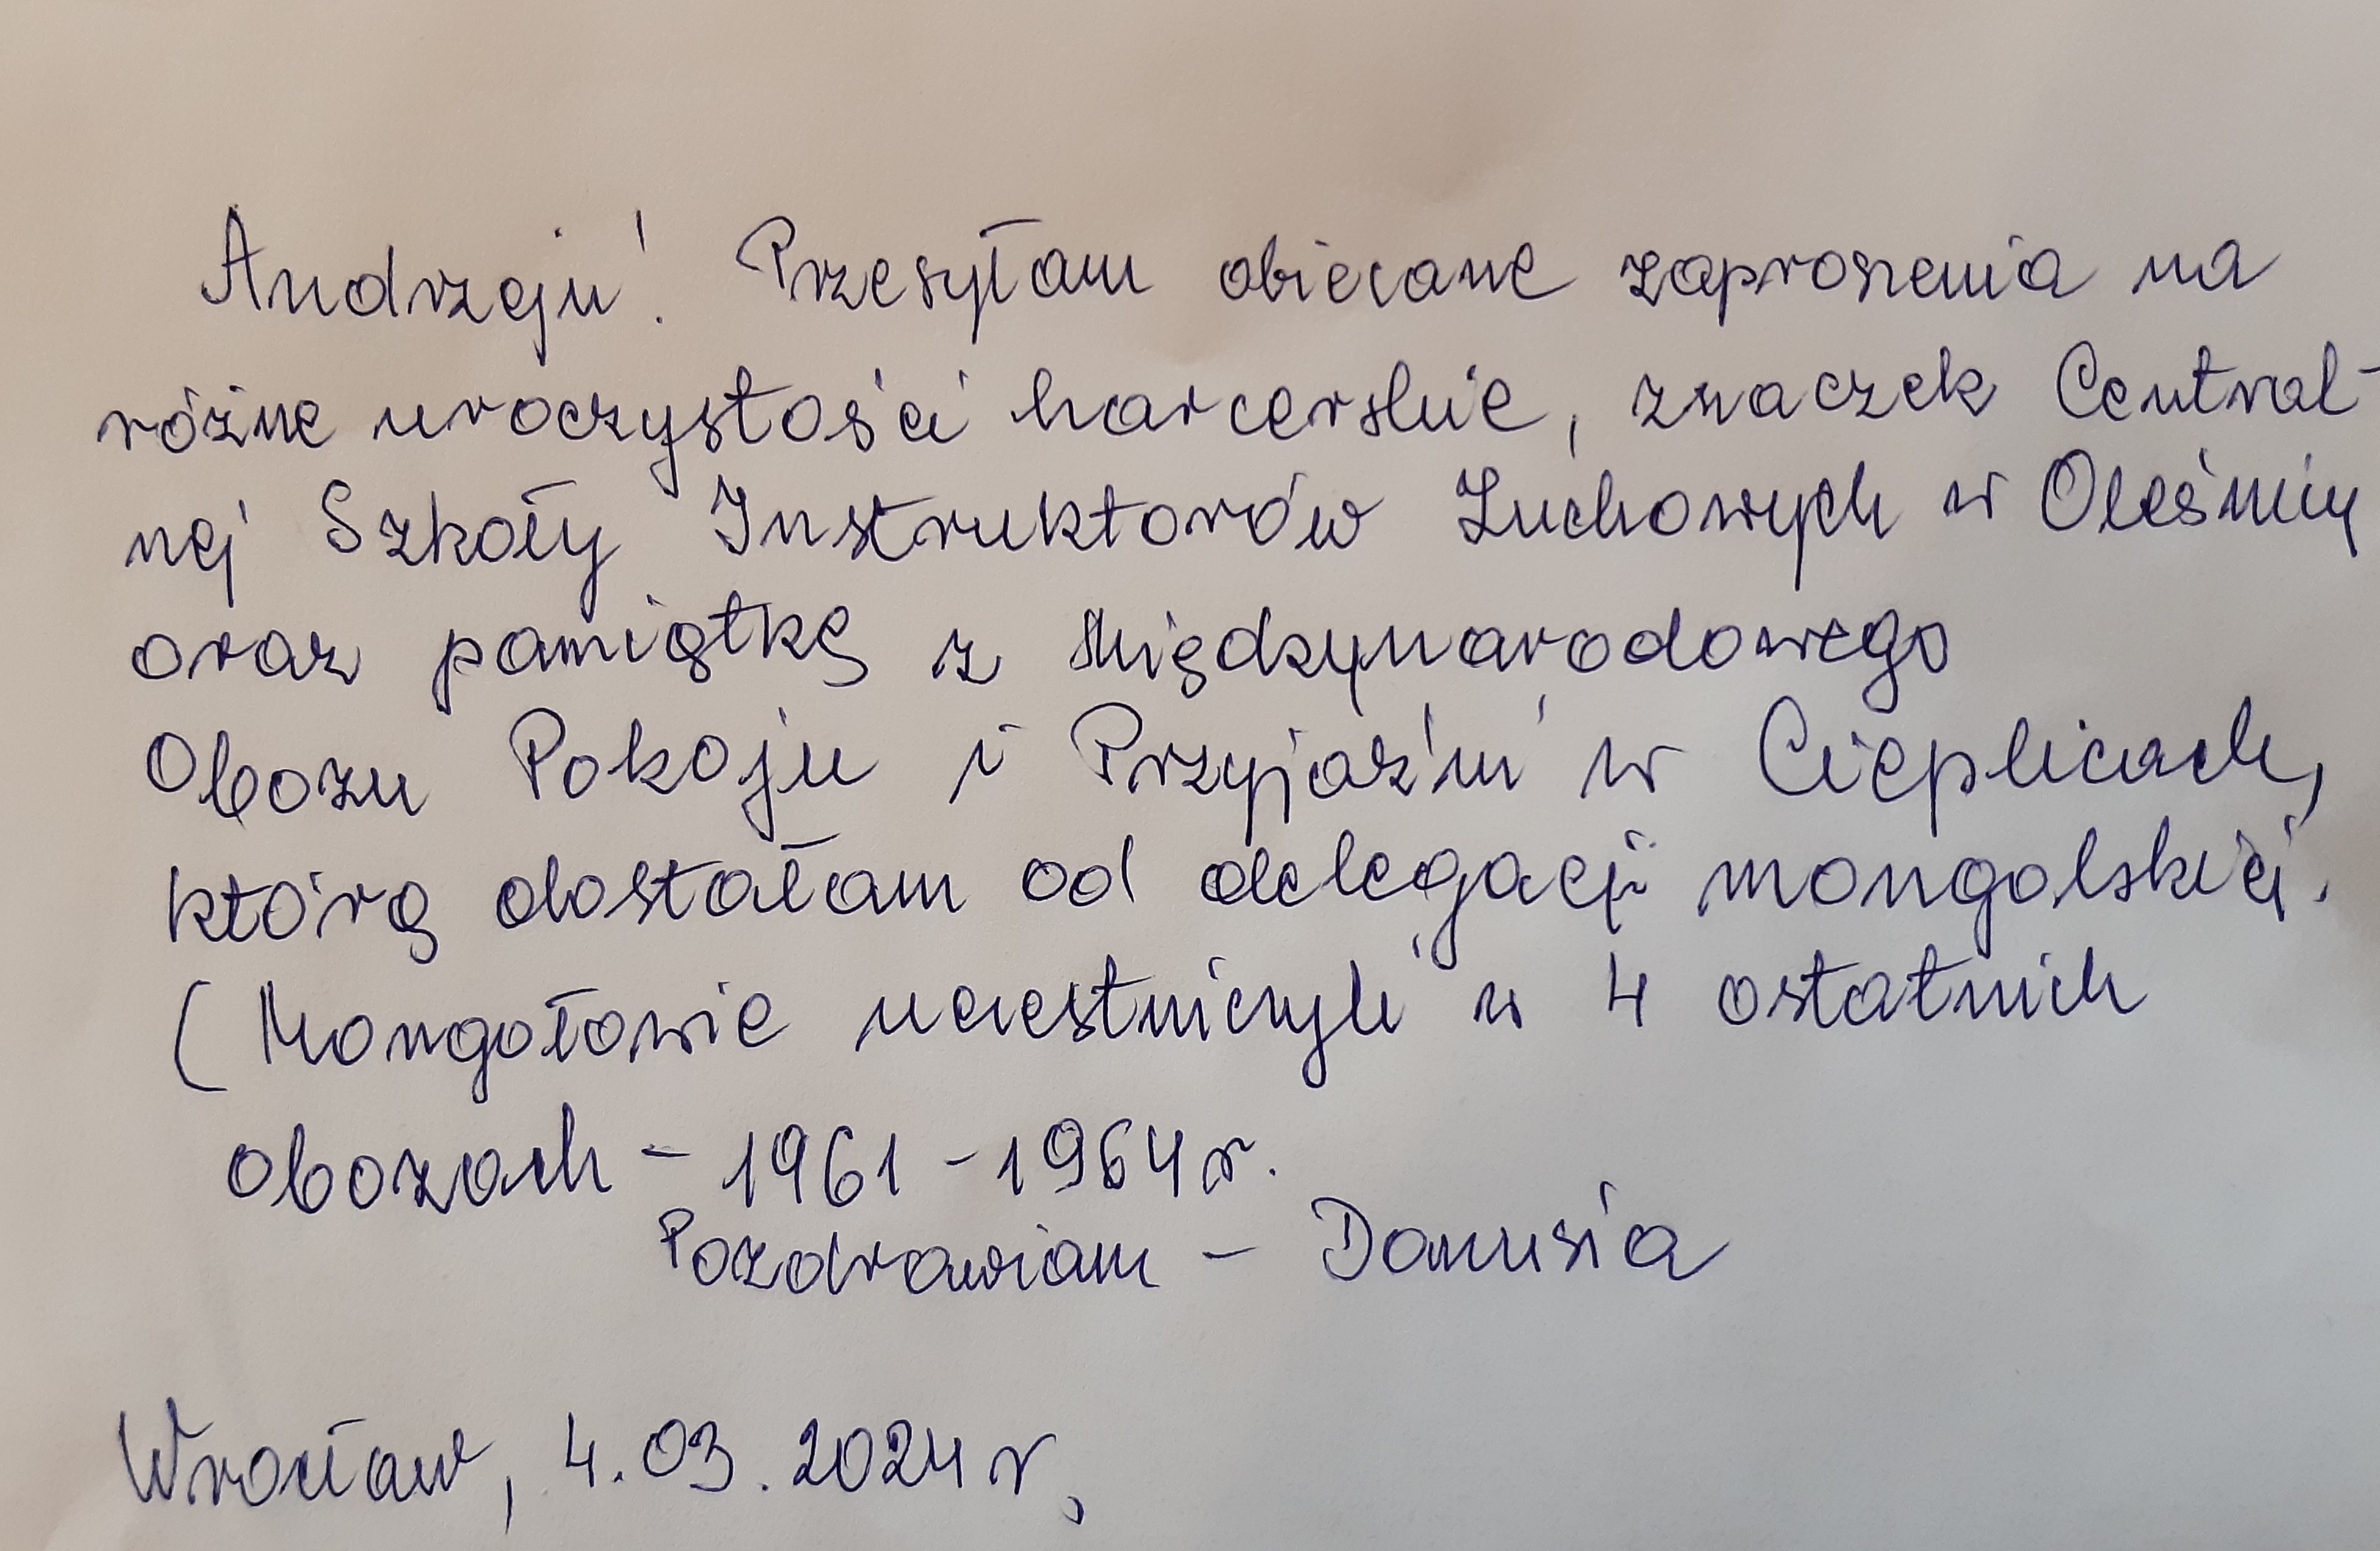 Andrzeju! Przesyłam obiecane zaproszenia na
różne uroczystości harcerskie, znaczek Central-
nej Szkoły Instruktorów Zuchowych w Oleśnicy
oraz pamiątkę z Międzynarodowego
Obozu Pokoju i Przyjaźni w Cieplicach,
którą dostałam od delegacji mongolskiej.
(Mongołowie uczestniczyli w 4 ostatnich
obozach - 1961 - 1964 r.
Pozdrawiam - Danusia
Wrocław, 4.03.2024 r,